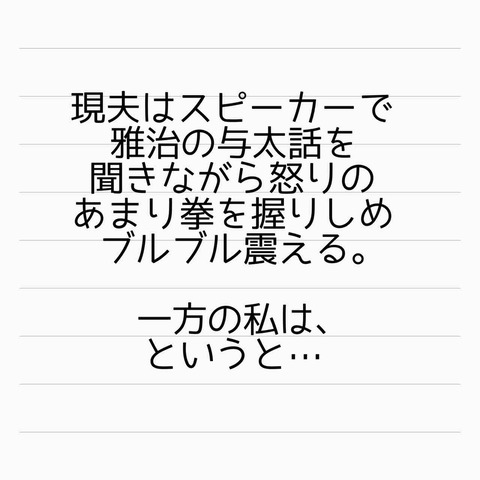 現夫はスピーカーで
雅治の与太話を
聞きながら怒りの
あまり拳を握りしめ
ブルブル震える。
一方の私は、
というと…